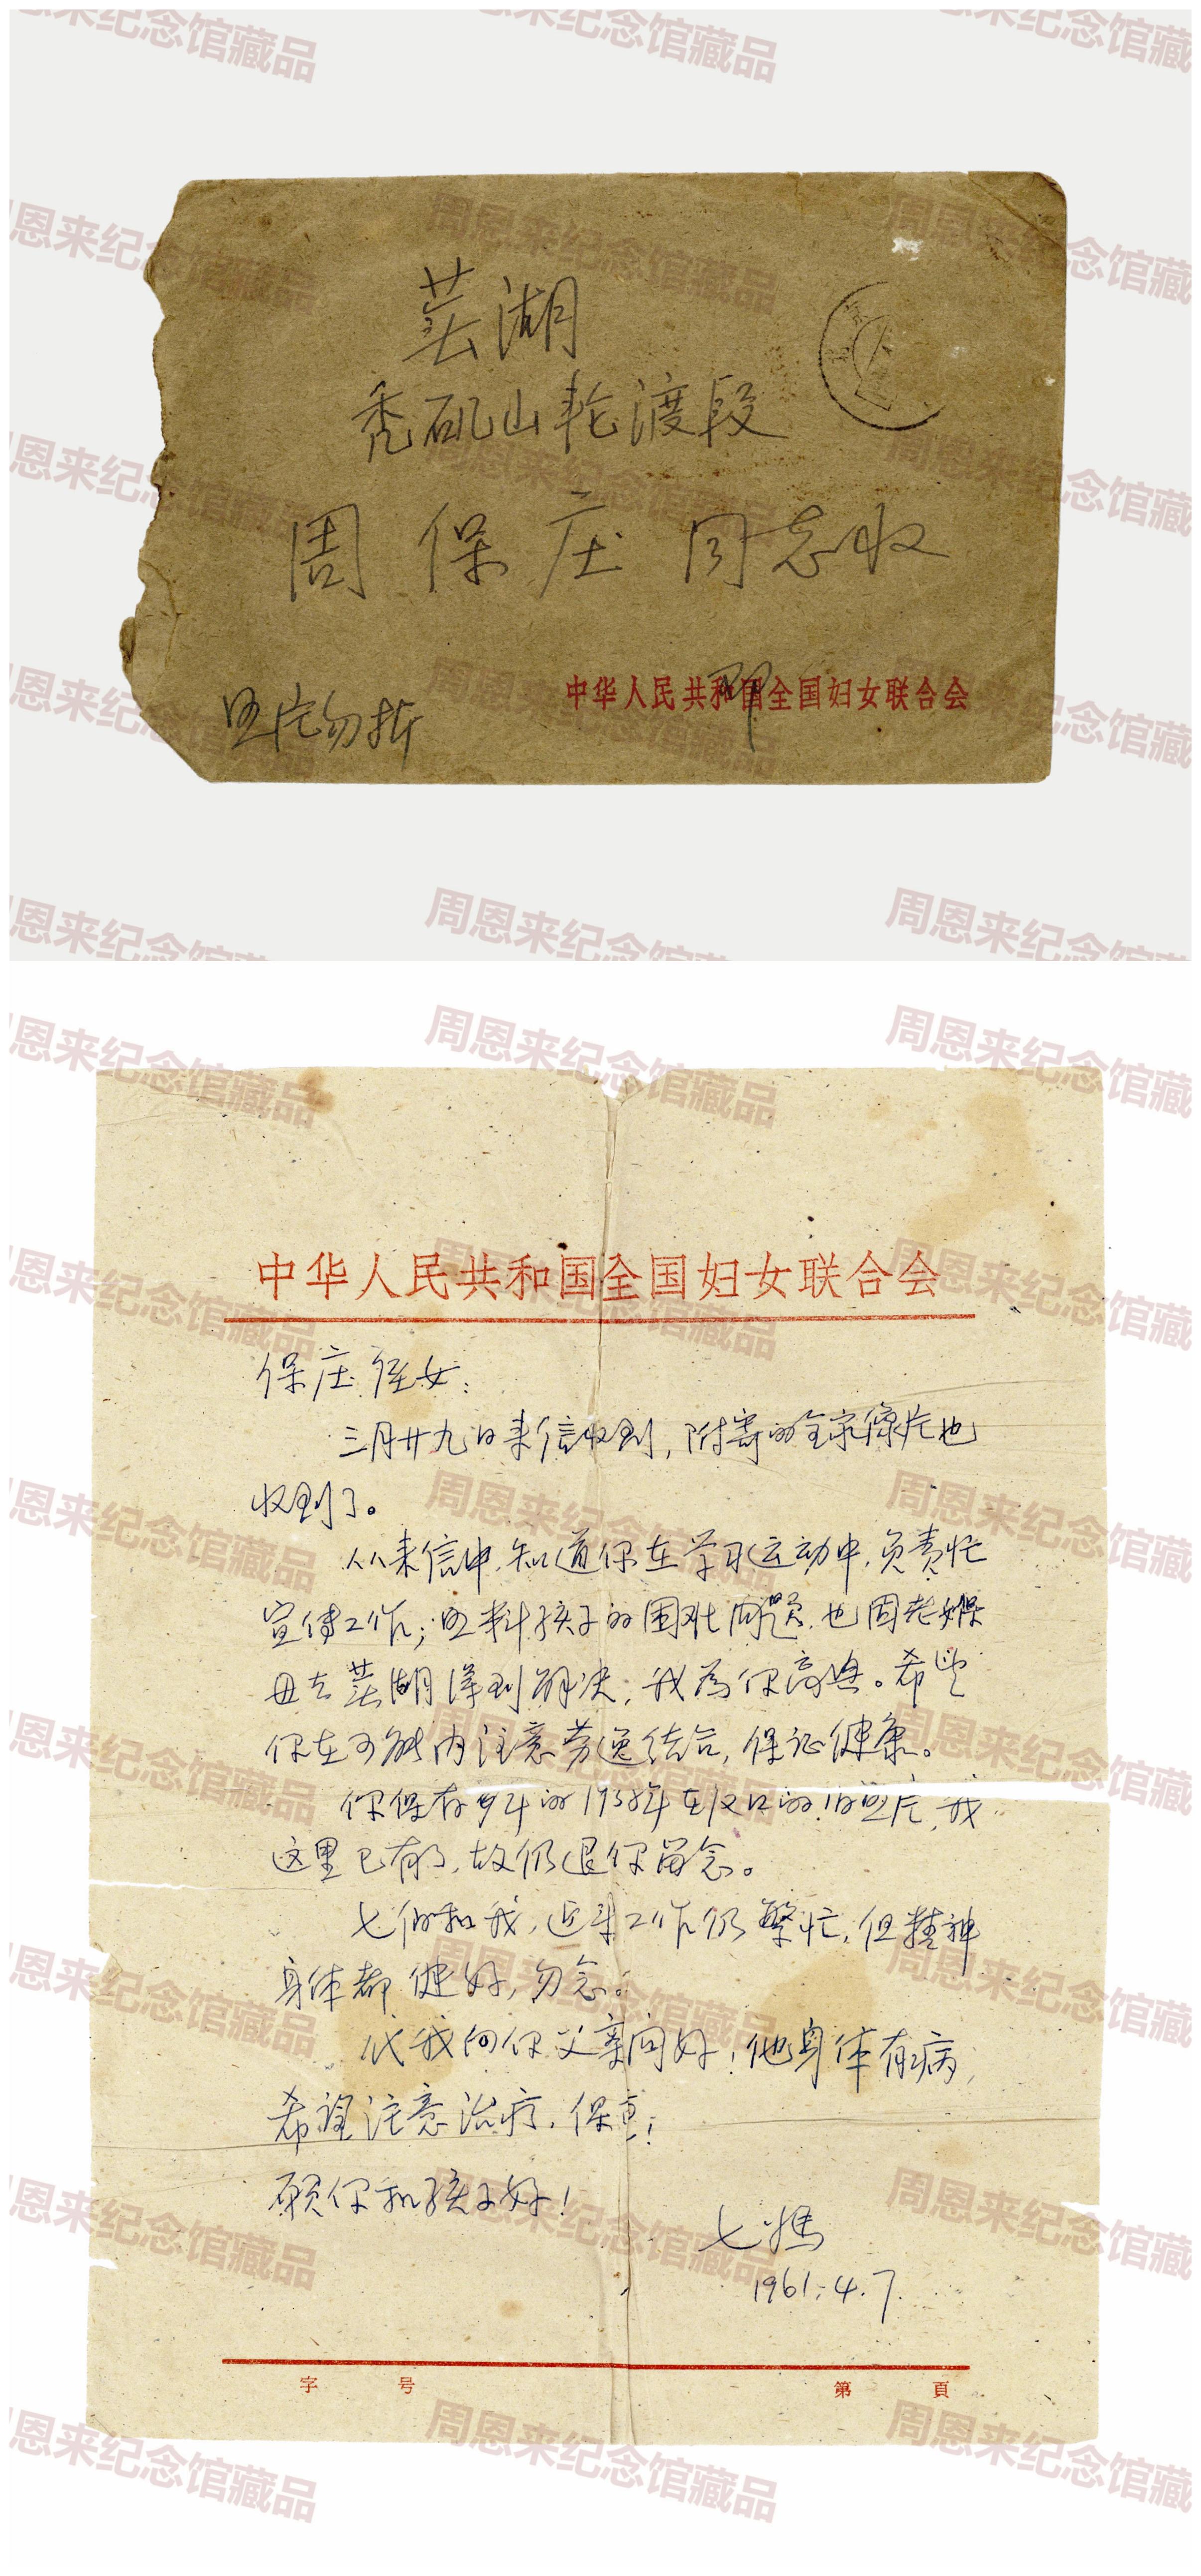 芜湖
秃矶山轮渡段
周保庄同志收
中华人民共和国全国妇女联合会
邓
照片勿折
中华人民共和国全国妇女联合会
保庄侄女:
三月廿九日来信收到,附寄的全家像片也
收到了。
从来信中,知道你在学习运动中,负责忙
宣传工作;照料孩子的困难问题,也因老婶
母去芜湖得到解决,我为你高兴。希望
你在可能内注意劳逸结合,保证健康。
你保存多年的1938年在汉口的旧照片,我
这里已有了,故仍退你留念。
七伯和我,近来工作仍繁忙,但精神
身体都健好,勿念。
代我向你父亲问好!他身体有病,
希望注意治疗,保重!
愿你和孩子好!
七妈
1961.4.7.
字 号 第 頁
周恩来纪念馆藏品